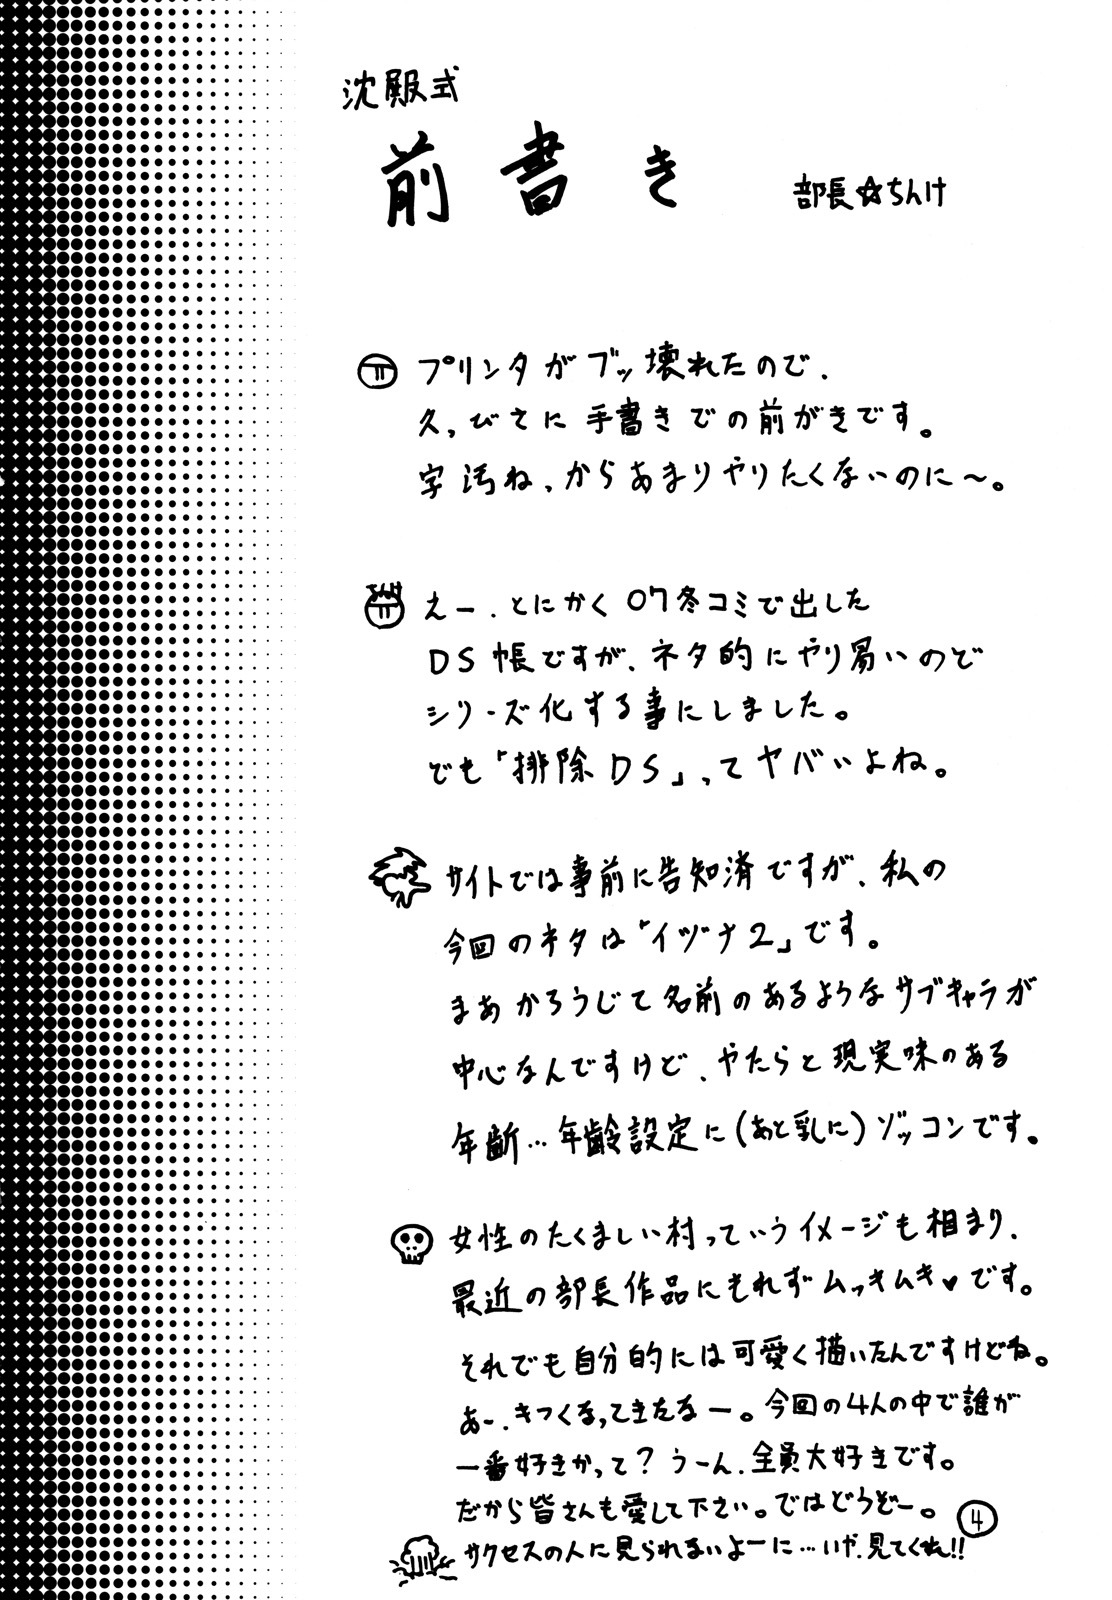 沈殿式
前書き
部長☆ちんけ
プリンタがブッ壊れたので、
久っびさに手書きでの前がきです。
字汚ねぇからあまりやりたくないのに〜。
えー、とにかく07冬コミで出した
DS帳ですが、ネタ的にやり易いので
シリーズ化する事にしました。
でも「排除DS」ってヤバいよね。
サイトでは事前に告知済ですが、私の
今回のネタは「イヅナ2」です。
まあかろうじて名前のあるようなサブキャラが
中心なんですけど、やたらと現実味のある
年齢…年齢設定に(あと乳に)ゾッコンです。
女性のたくましい村っていうイメージも相まり、
最近の部長作品にもれずムっきムき♥です。
それでも自分的には可愛く描いたんですけどね。
あ〜、きつくなってきたなー。今回の4人の中で誰が
一番好きかって?うーん、全員大好きです。
だから皆さんも愛して下さい。ではどうぞー。
サクセスの人に見られないよーに…いや、見てくれ!!
4